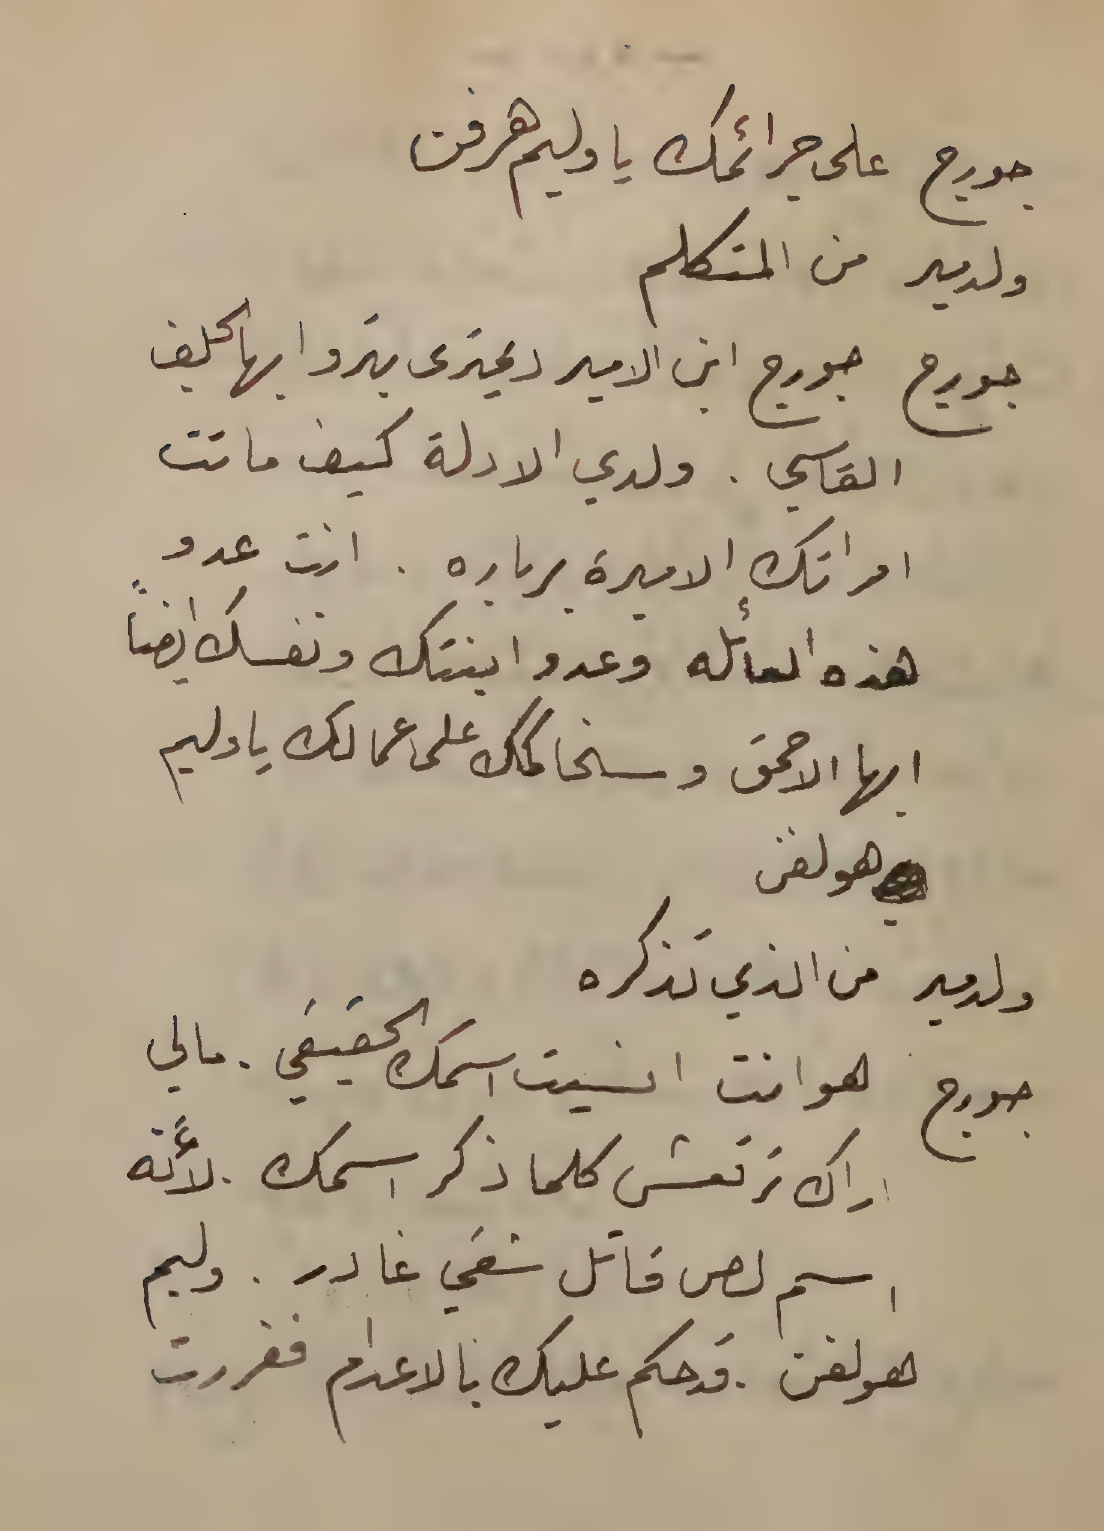 جورج على جرائمك يا وليم هرفن
ولدمير من المتكلم
جورج جورج ابن الامير ديميتري بتروا ايها
القاسي . ولدي الادلة كيف ماتت
امراتك الاميرة برباره . انت عدو
هذه العائله وعدو ابنتك ونفسك ايضاً
ايها الاحمق وسنحاكمك على عمالك يا وليم
هولفن
ولدمير من الذي تذكره
جورج هو انت انسيت اسمك الحقيقي . مالي
اراك ترتعش كلما ذكر اسمك . لأنه
اسم لص قاتل شقي غادر . وليم
هولفن . قد حكم عليك بالاعدام ففررت